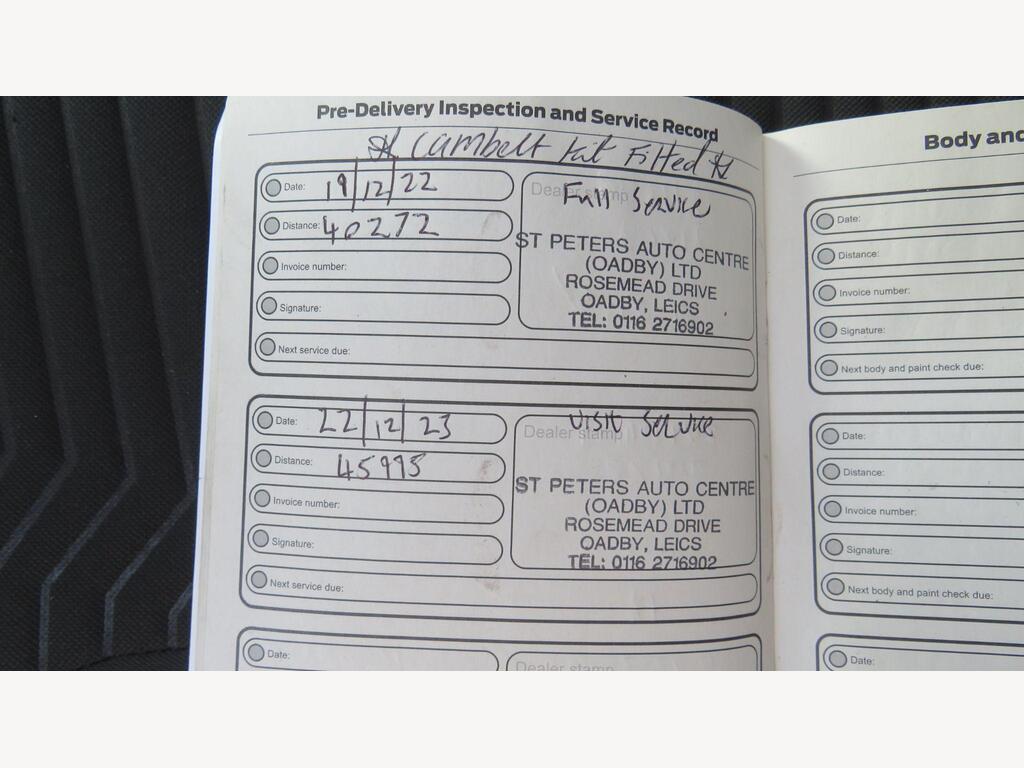 Pre-Delivery Inspection and Service Record
Cambelt Kit Fitted
Date: 19/12/22
Distance: 40272
Invoice number:
Signature:
Next service due:
Dealer stamp
Full Service
ST PETERS AUTO CENTRE
(OADBY) LTD
ROSEMEAD DRIVE
OADBY, LEICS
TEL: 0116 2716902
Date: 22/12/23
Distance: 45995
Invoice number:
Signature:
Next service due:
Dealer stamp
Visit Service
ST PETERS AUTO CENTRE
(OADBY) LTD
ROSEMEAD DRIVE
OADBY, LEICS
TEL: 0116 2716902
Date:
Dealer stamp
Body and
Date:
Distance:
Invoice number:
Signature:
Next body and paint check due:
Date:
Distance:
Invoice number:
Signature:
Next body and paint check due:
Date: